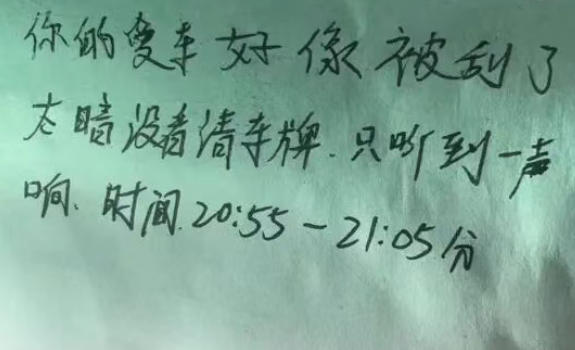 你的爱车好像被刮了
太暗没看清车牌.只听到一声
响.时间.20:55-21:05分